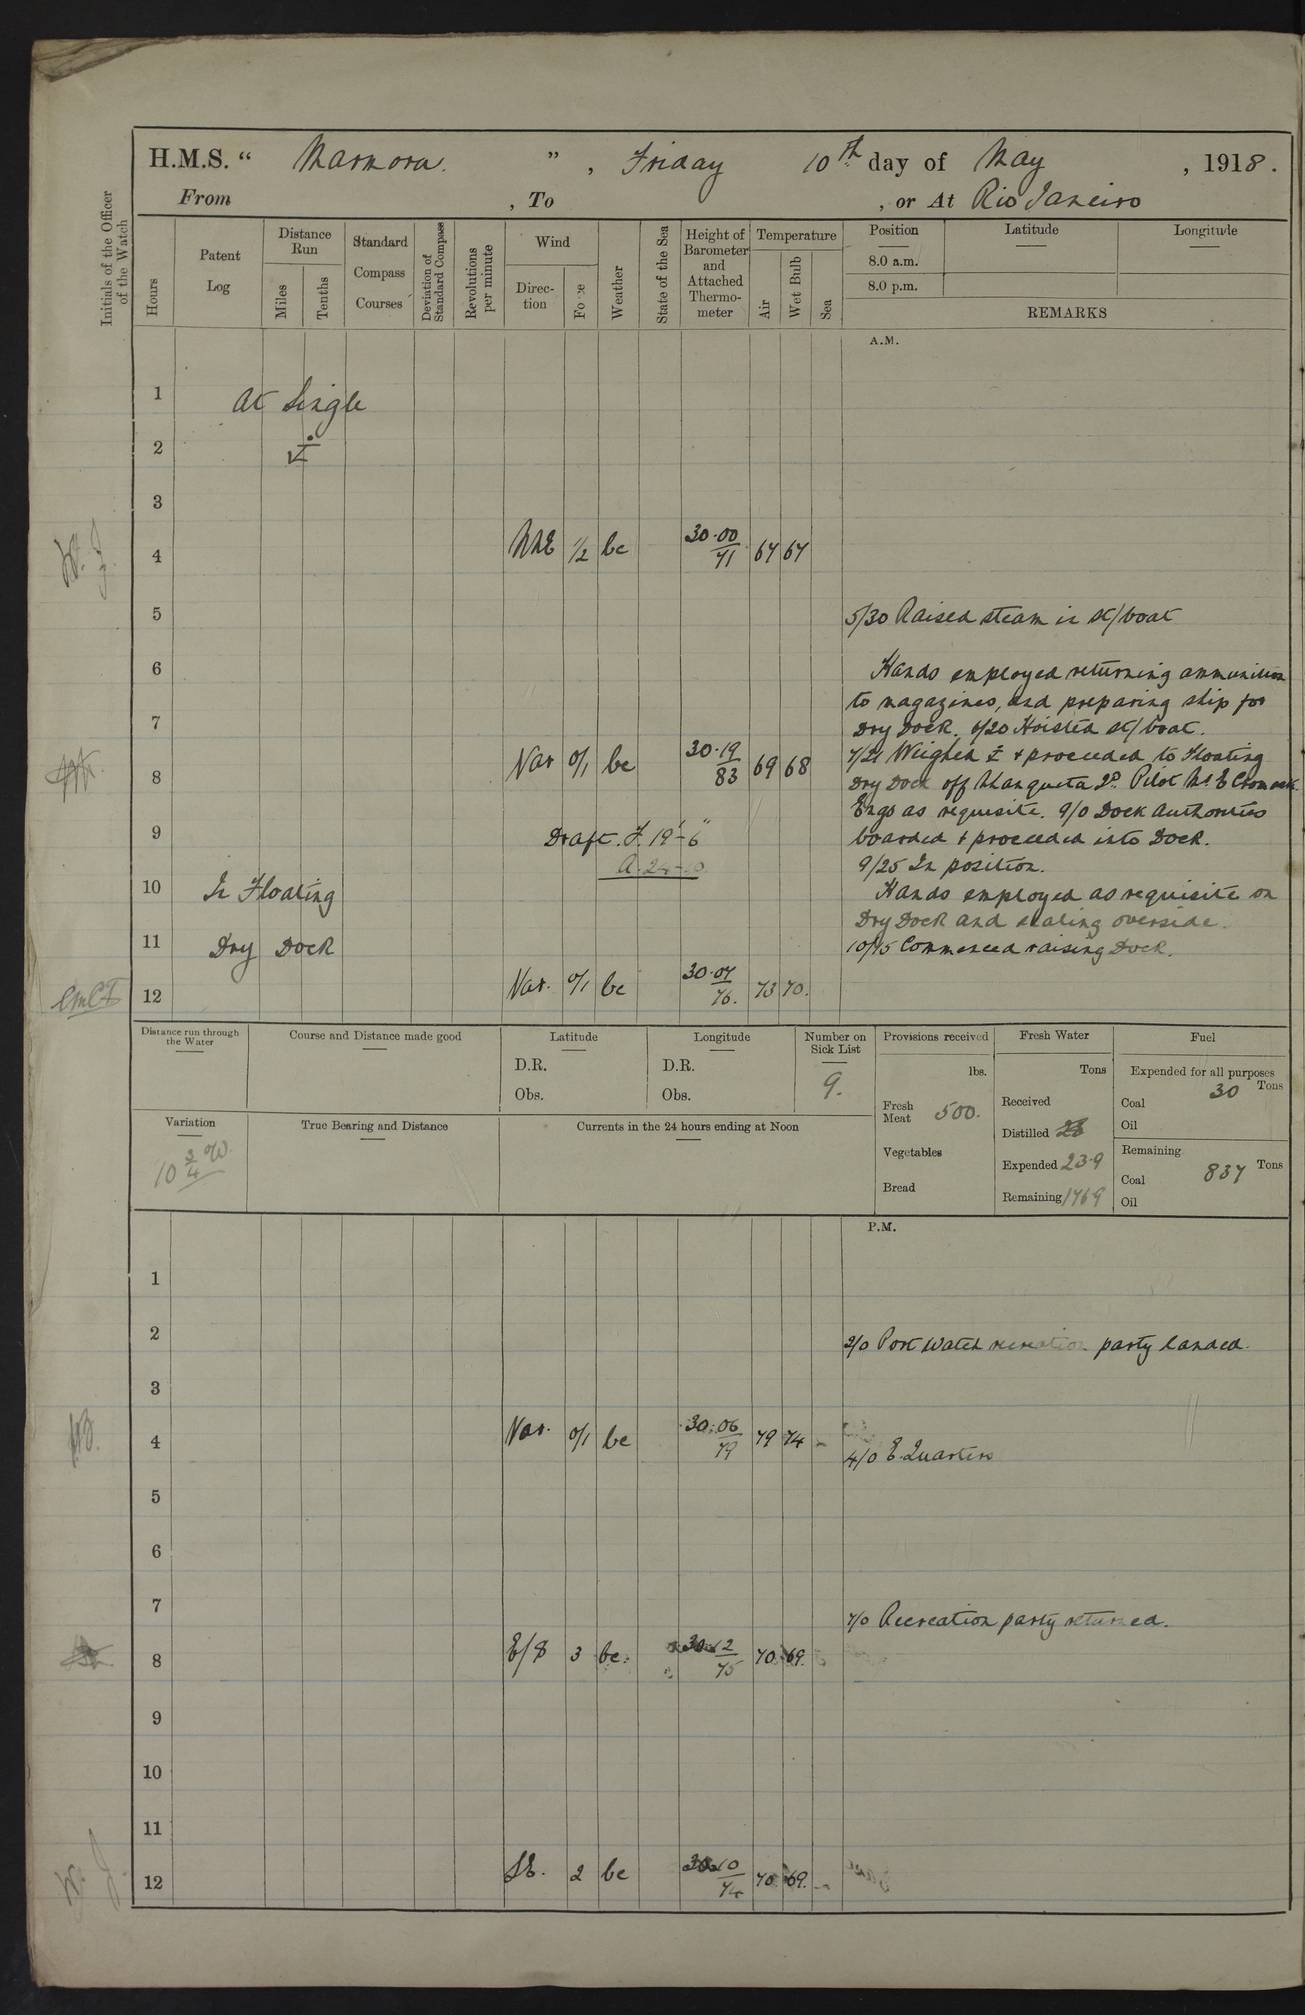 H.M.S. “ Marmora. ” , Friday 10th day of May , 1918.
From , To , or At Rio Janeiro
Initials of the Officer of the Watch
Hours
Patent Log
Distance Run
Miles
Tenths
Standard Compass Courses
Deviation of Standard Compass
Revolutions per minute
Wind
Direction
Force
Weather
State of the Sea
Height of Barometer and Attached Thermometer
Temperature
Air
Wet Bulb
Sea
Position
8.0 a.m.
8.0 p.m.
Latitude
Longitude
REMARKS
A.M.
1 At Single
2
3
4 NNE 1/2 bc 30.00 71 67 67
5 5/30 Raised steam in st/boat
6 Hands employed returning ammunition
to magazines, and preparing ship for
7 Dry Dock. 6/20 Hoisted st/boat.
7/21 Weighed & proceeded to Floating
8 Var 0/1 bc 30.19 83 69 68
Dry Dock off Pilot Mr E
Engs as requisite. 9/0 Dock Authorities
9 Draft. F. 19'-6" boarded & proceeded into Dock.
A. 24-10 9/25 In position.
10 In Floating Hands employed as requisite on
Dry Dock and scaling overside.
11 Dry Dock 10/45 Commenced raising Dock.
12 Var. 0/1 bc 30.07 76. 73 70.
Distance run through the Water
Course and Distance made good
Latitude
D.R.
Obs.
Longitude
D.R.
Obs.
Number on Sick List
9.
Provisions received
lbs.
Fresh Meat 500.
Vegetables
Bread
Fresh Water
Tons
Received
Distilled 28
Expended 23.9
Remaining 1769
Fuel
Expended for all purposes
Tons
Coal 30
Oil
Remaining
Tons
Coal 837
Oil
Variation
10 3/4 °W.
True Bearing and Distance
Currents in the 24 hours ending at Noon
P.M.
1
2 2/0 Port Watch recreation party landed.
3
4 Var. 0/1 bc 30.06 79 79 74
4/0 E. Quarters
5
6
7 7/0 Recreation party returned.
8 E/S 3 bc. 30.12 75 70 69.
9
10
11
12 SE. 2 bc 30.10 74 70 69.